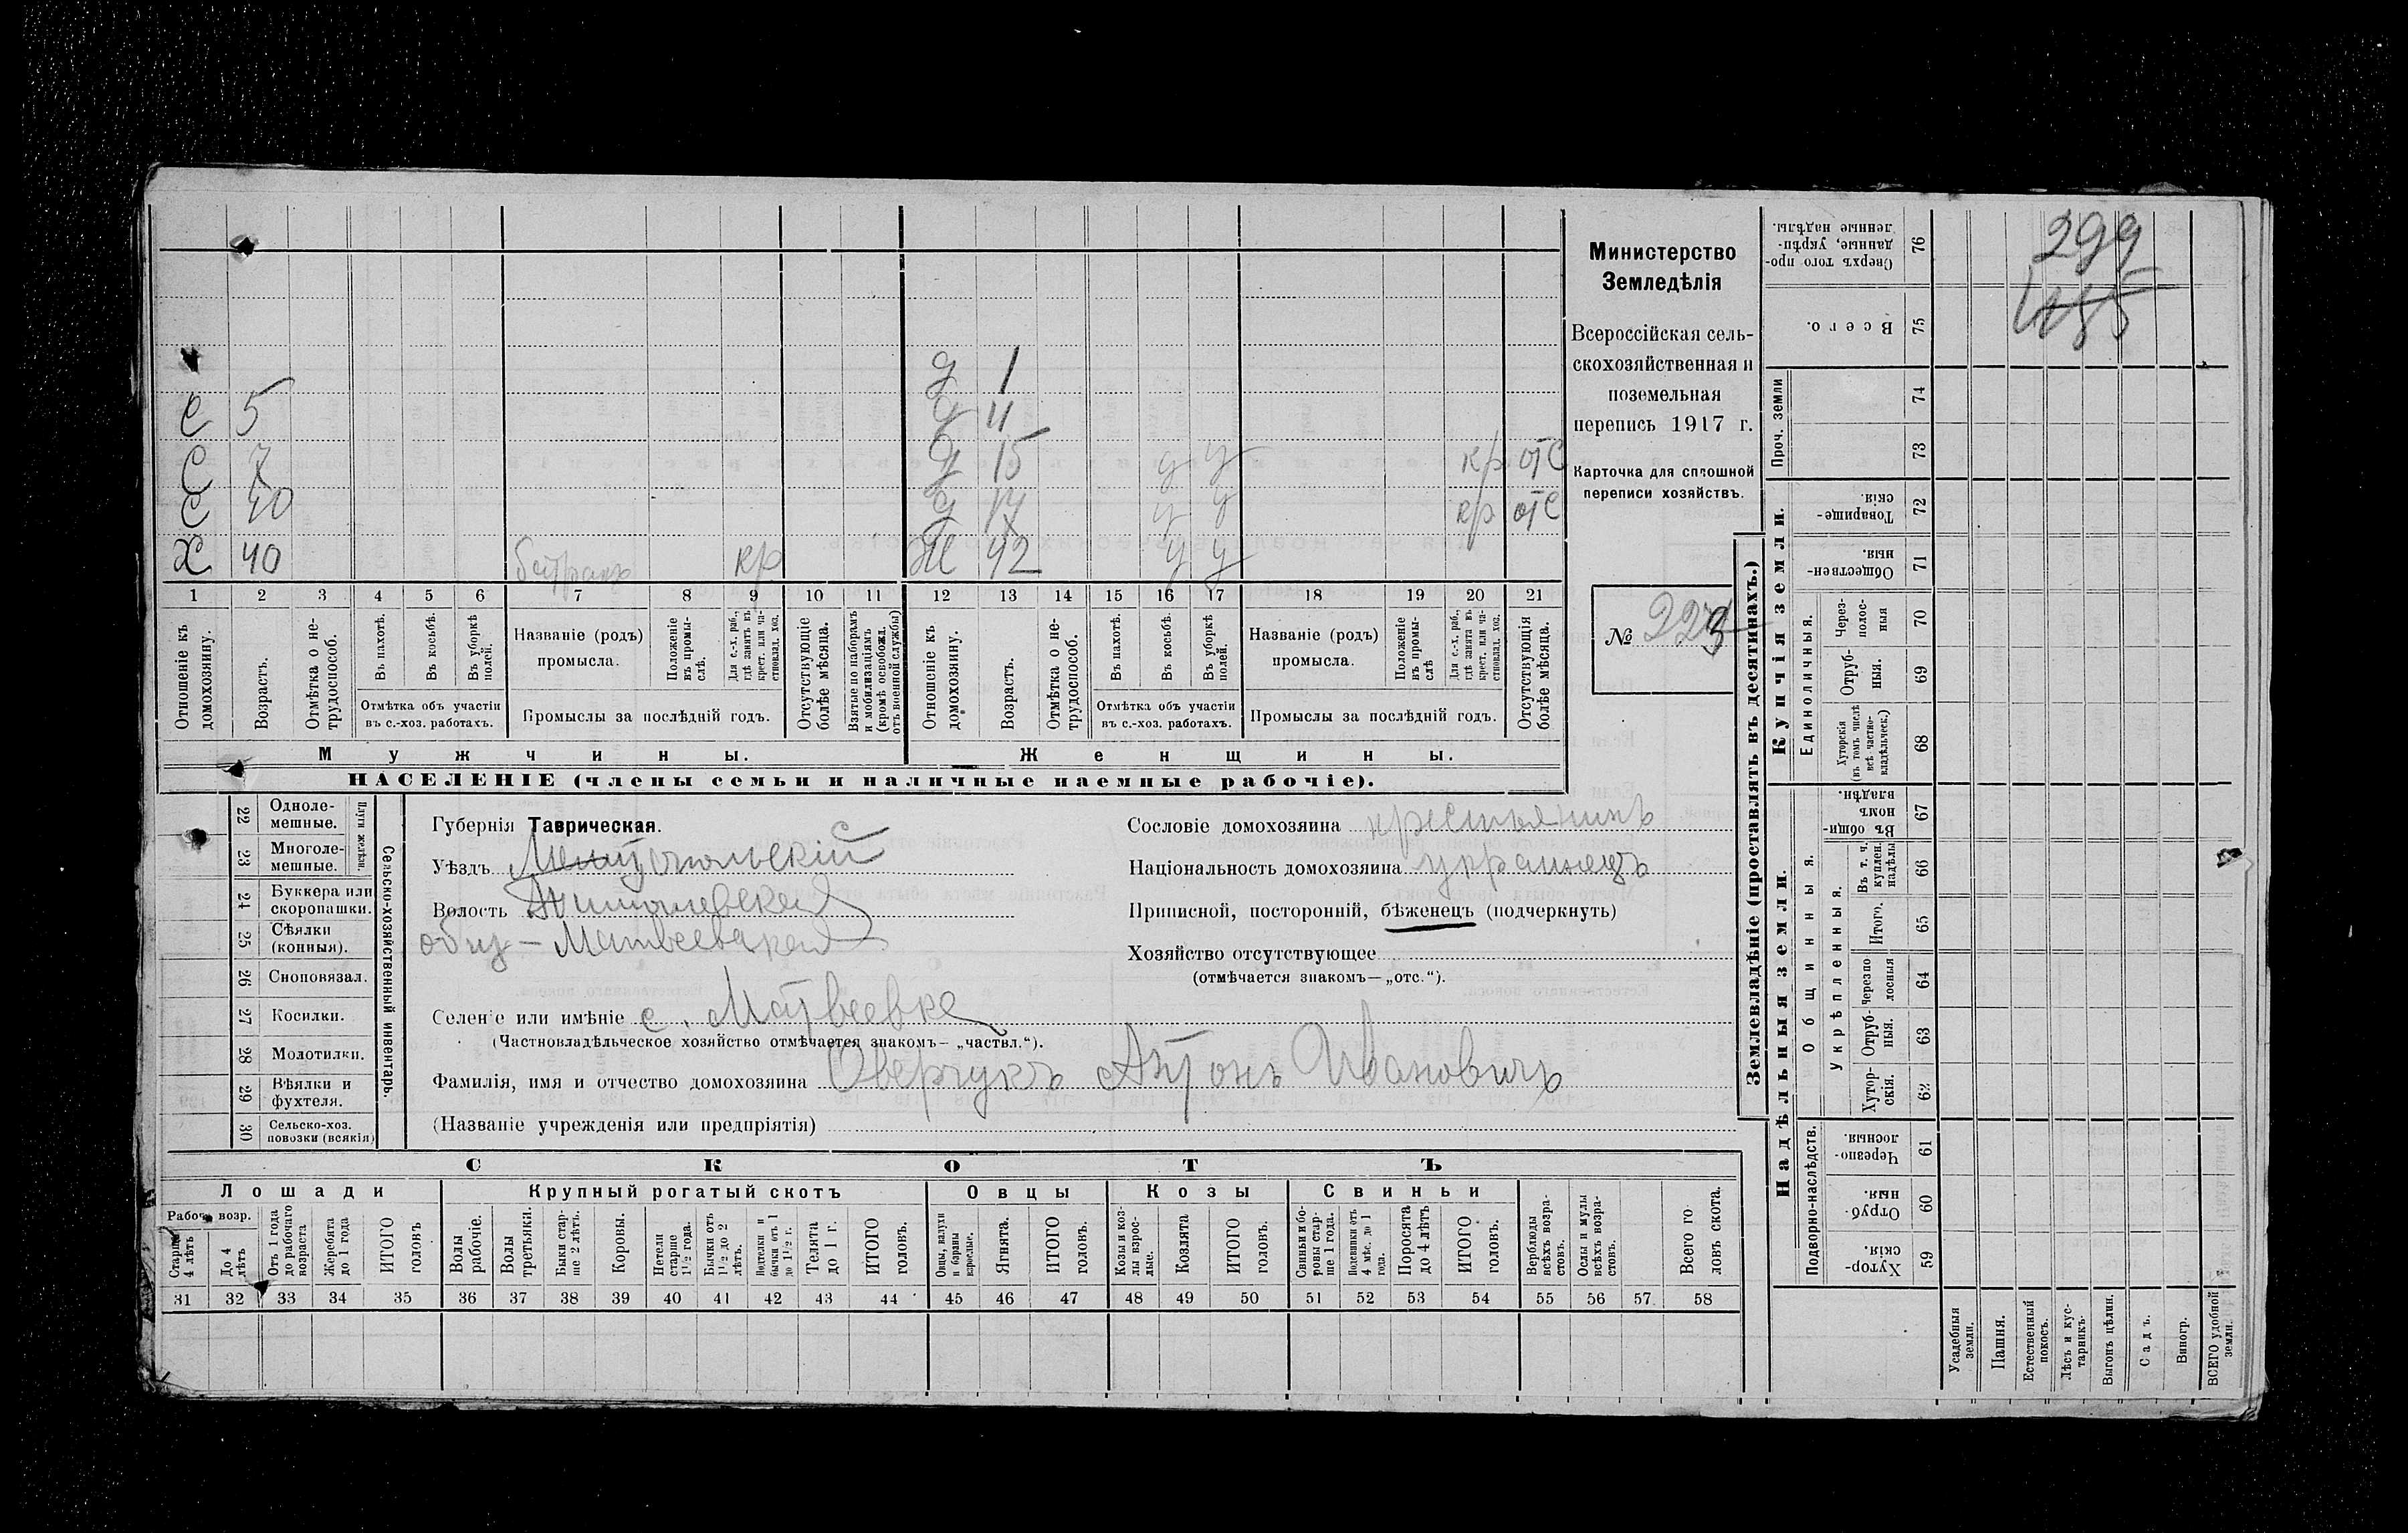 299
485
Министерство
Земледѣлія
Всероссійская сель-
скохозяйственная и
поземельная
перепись 1917 г.
Карточка для сплошной
переписи хозяйствъ.
№ 223
д 1
с 5 д 11
с 7 д 15 у у кр отс
с 10 д 17 у у кр отс
х 40 батракъ кр ж 42 у у
1 2 3 4 5 6 7 8 9 10 11 12 13 14 15 16 17 18 19 20 21
Отношеніе къ домохозяину.
Возрастъ.
Отмѣтка о не-трудоспособ.
Въ пахотѣ.
Въ косьбѣ.
Въ уборкѣ полей.
Отмѣтка объ участіи
въ с.-хоз. работахъ.
Названіе (родъ)
промысла.
Положеніе въ промы-слѣ.
Для с.-х. раб., гдѣ занятъ въ крест. или ча-стновлад. хоз.
Промыслы за послѣдній годъ.
Отсутствующіе болѣе мѣсяца.
Взятые по наборамъ и мобилизаціямъ (кромѣ освобожд. отъ военной службы)
Отношеніе къ домохозяину.
Возрастъ.
Отмѣтка о не-трудоспособ.
Въ пахотѣ.
Въ косьбѣ.
Въ уборкѣ полей.
Отмѣтка объ участіи
въ с.-хоз. работахъ.
Названіе (родъ)
промысла.
Положеніе въ промы-слѣ
Для с.-х. раб., гдѣ занята въ крест. или ча-стновлад. хоз.
Промыслы за послѣдній годъ.
Отсутствующія болѣе мѣсяца.
Мужчины. Женщины.
НАСЕЛЕНІЕ (члены семьи и наличные наемные рабочіе).
Сельско-хозяйственный инвентарь.
Плуги желѣзн.
22 Одноле-мешные.
23 Многоле-мешные.
24 Буккера или скоропашки.
25 Сѣялки (конныя).
26 Сноповязал.
27 Косилки.
28 Молотилки.
29 Вѣялки и фухтеля.
30 Сельско-хоз. повозки (всякія)
Губернія Таврическая.
Уѣздъ Мелитопольскій
Волость
общ - Матвеевская
Селеніе или имѣніе с. Матвеевка
(Частновладѣльческое хозяйство отмѣчается знакомъ— „частвл.“).
Фамилія, имя и отчество домохозяина Оверчукъ Антонъ Ивановичъ
(Названіе учрежденія или предпріятія)
Сословіе домохозяина крестьянинъ
Національность домохозяина украинецъ
Приписной, посторонній, бѣженецъ (подчеркнуть)
Хозяйство отсутствующее
(отмѣчается знакомъ—„отс.“).
СКОТЪ
Лошади Крупный рогатый скотъ Овцы Козы Свиньи
Рабоч. возр.
Старше 4 лѣтъ
До 4 лѣтъ
Отъ 1 года до рабочаго возраста
Жеребята до 1 года
ИТОГО головъ
Волы рабочіе.
Волы третьяки.
Быки стар-ше 2 лѣтъ.
Коровы.
Нетели старше 1½ года.
Бычки отъ 1½ до 2 лѣтъ.
Подтелки и бычки отъ 1 до 1½ г.
Телята до 1 г.
ИТОГО головъ.
Овцы, валухи и бараны взрослые.
Ягнята.
ИТОГО головъ.
Козы и коз-лы взрос-лые.
Козлята
ИТОГО головъ.
Свиньи и бо-ровы стар-ше 1 года.
Подсвинки отъ 4 мѣс. до 1 года.
Поросята до 4 лѣтъ
ИТОГО головъ.
Верблюды всѣхъ возра-стовъ.
Ослы и мулы всѣхъ возра-стовъ.
Всего го-ловъ скота.
31 32 33 34 35 36 37 38 39 40 41 42 43 44 45 46 47 48 49 50 51 52 53 54 55 56 57 58
Землевладѣніе (проставлять въ десятинахъ.)
Купчія земли.
Надѣльныя земли.
Сверхъ того про-данные, укрѣп-ленные надѣлы. 76
Всего. 75
Проч. земли 74
73
Товарище-скія. 72
Обществен-ныя. 71
Единоличныя.
Через-полос-ныя 70
Отруб-ныя. 69
Хуторскія (въ томъ числѣ всѣ частно-владѣльческ.) 68
Общинныя.
Въ общин-номъ владѣн. 67
Укрѣпленныя.
Въ т. ч. куплен. надѣлы 66
Итого. 65
Черезпо-лосныя 64
Отруб-ныя. 63
Хутор-скія. 62
Подворно-наслѣдств.
Черезпо-лосныя 61
Отруб-ныя. 60
Хутор-скія. 59
Усадебныя земли.
Пашня.
Естественный покосъ.
Лѣсъ и кус-тарникъ.
Выгонъ цѣлин.
Садъ.
Виногр.
ВСЕГО удобной земли.